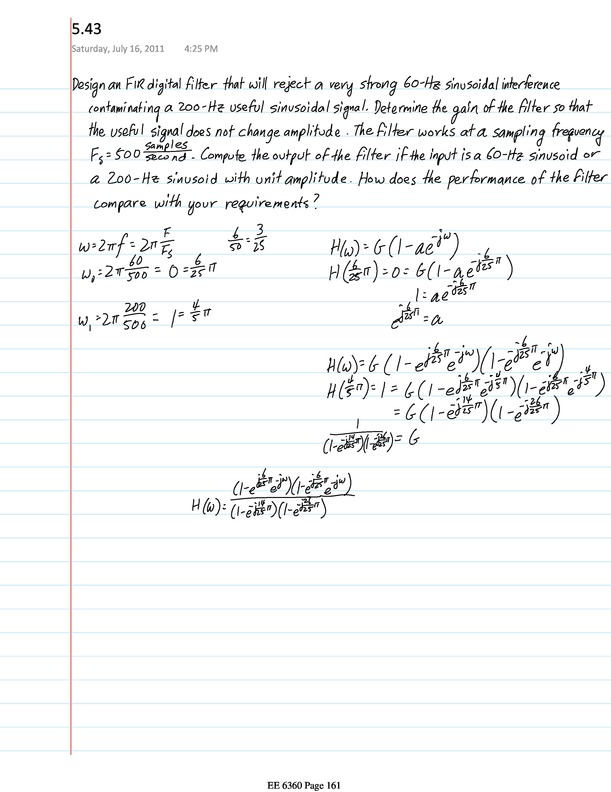 5.43
Saturday, July 16, 2011 4:25 PM
Design an FIR digital filter that will reject a very strong 60-Hz sinusoidal interference
contaminating a 200-Hz useful sinusoidal signal. Determine the gain of the filter so that
the useful signal does not change amplitude. The filter works at a sampling frequency
F_s = 500 samples/second. Compute the output of the filter if the input is a 60-Hz sinusoid or
a 200-Hz sinusoid with unit amplitude. How does the performance of the filter
compare with your requirements?
ω=2πf=2π F/F_s 6/50=3/25
ω_0=2π 60/500 = 0 = 6/25 π
ω_1=2π 200/500 = 1 = 4/5 π
H(ω)=G(1-ae^{-jω})
H(6/25 π)=0=G(1-a e^{-j 6/25 π})
1=ae^{-j 6/25 π}
e^{j 6/25 π}=a
H(ω)=G(1-e^{j 6/25 π}e^{-jω})(1-e^{-j 6/25 π}e^{-jω})
H(4/5 π)=1=G(1-e^{j 6/25 π}e^{-j 4/5 π})(1-e^{-j 6/25 π}e^{-j 4/5 π})
=G(1-e^{-j 14/25 π})(1-e^{-j 26/25 π})
1/((1-e^{-j 14/25 π})(1-e^{-j 26/25 π}))=G
H(ω)=((1-e^{j 6/25 π}e^{-jω})(1-e^{-j 6/25 π}e^{-jω}))/((1-e^{-j 14/25 π})(1-e^{-j 26/25 π}))
EE 6360 Page 161